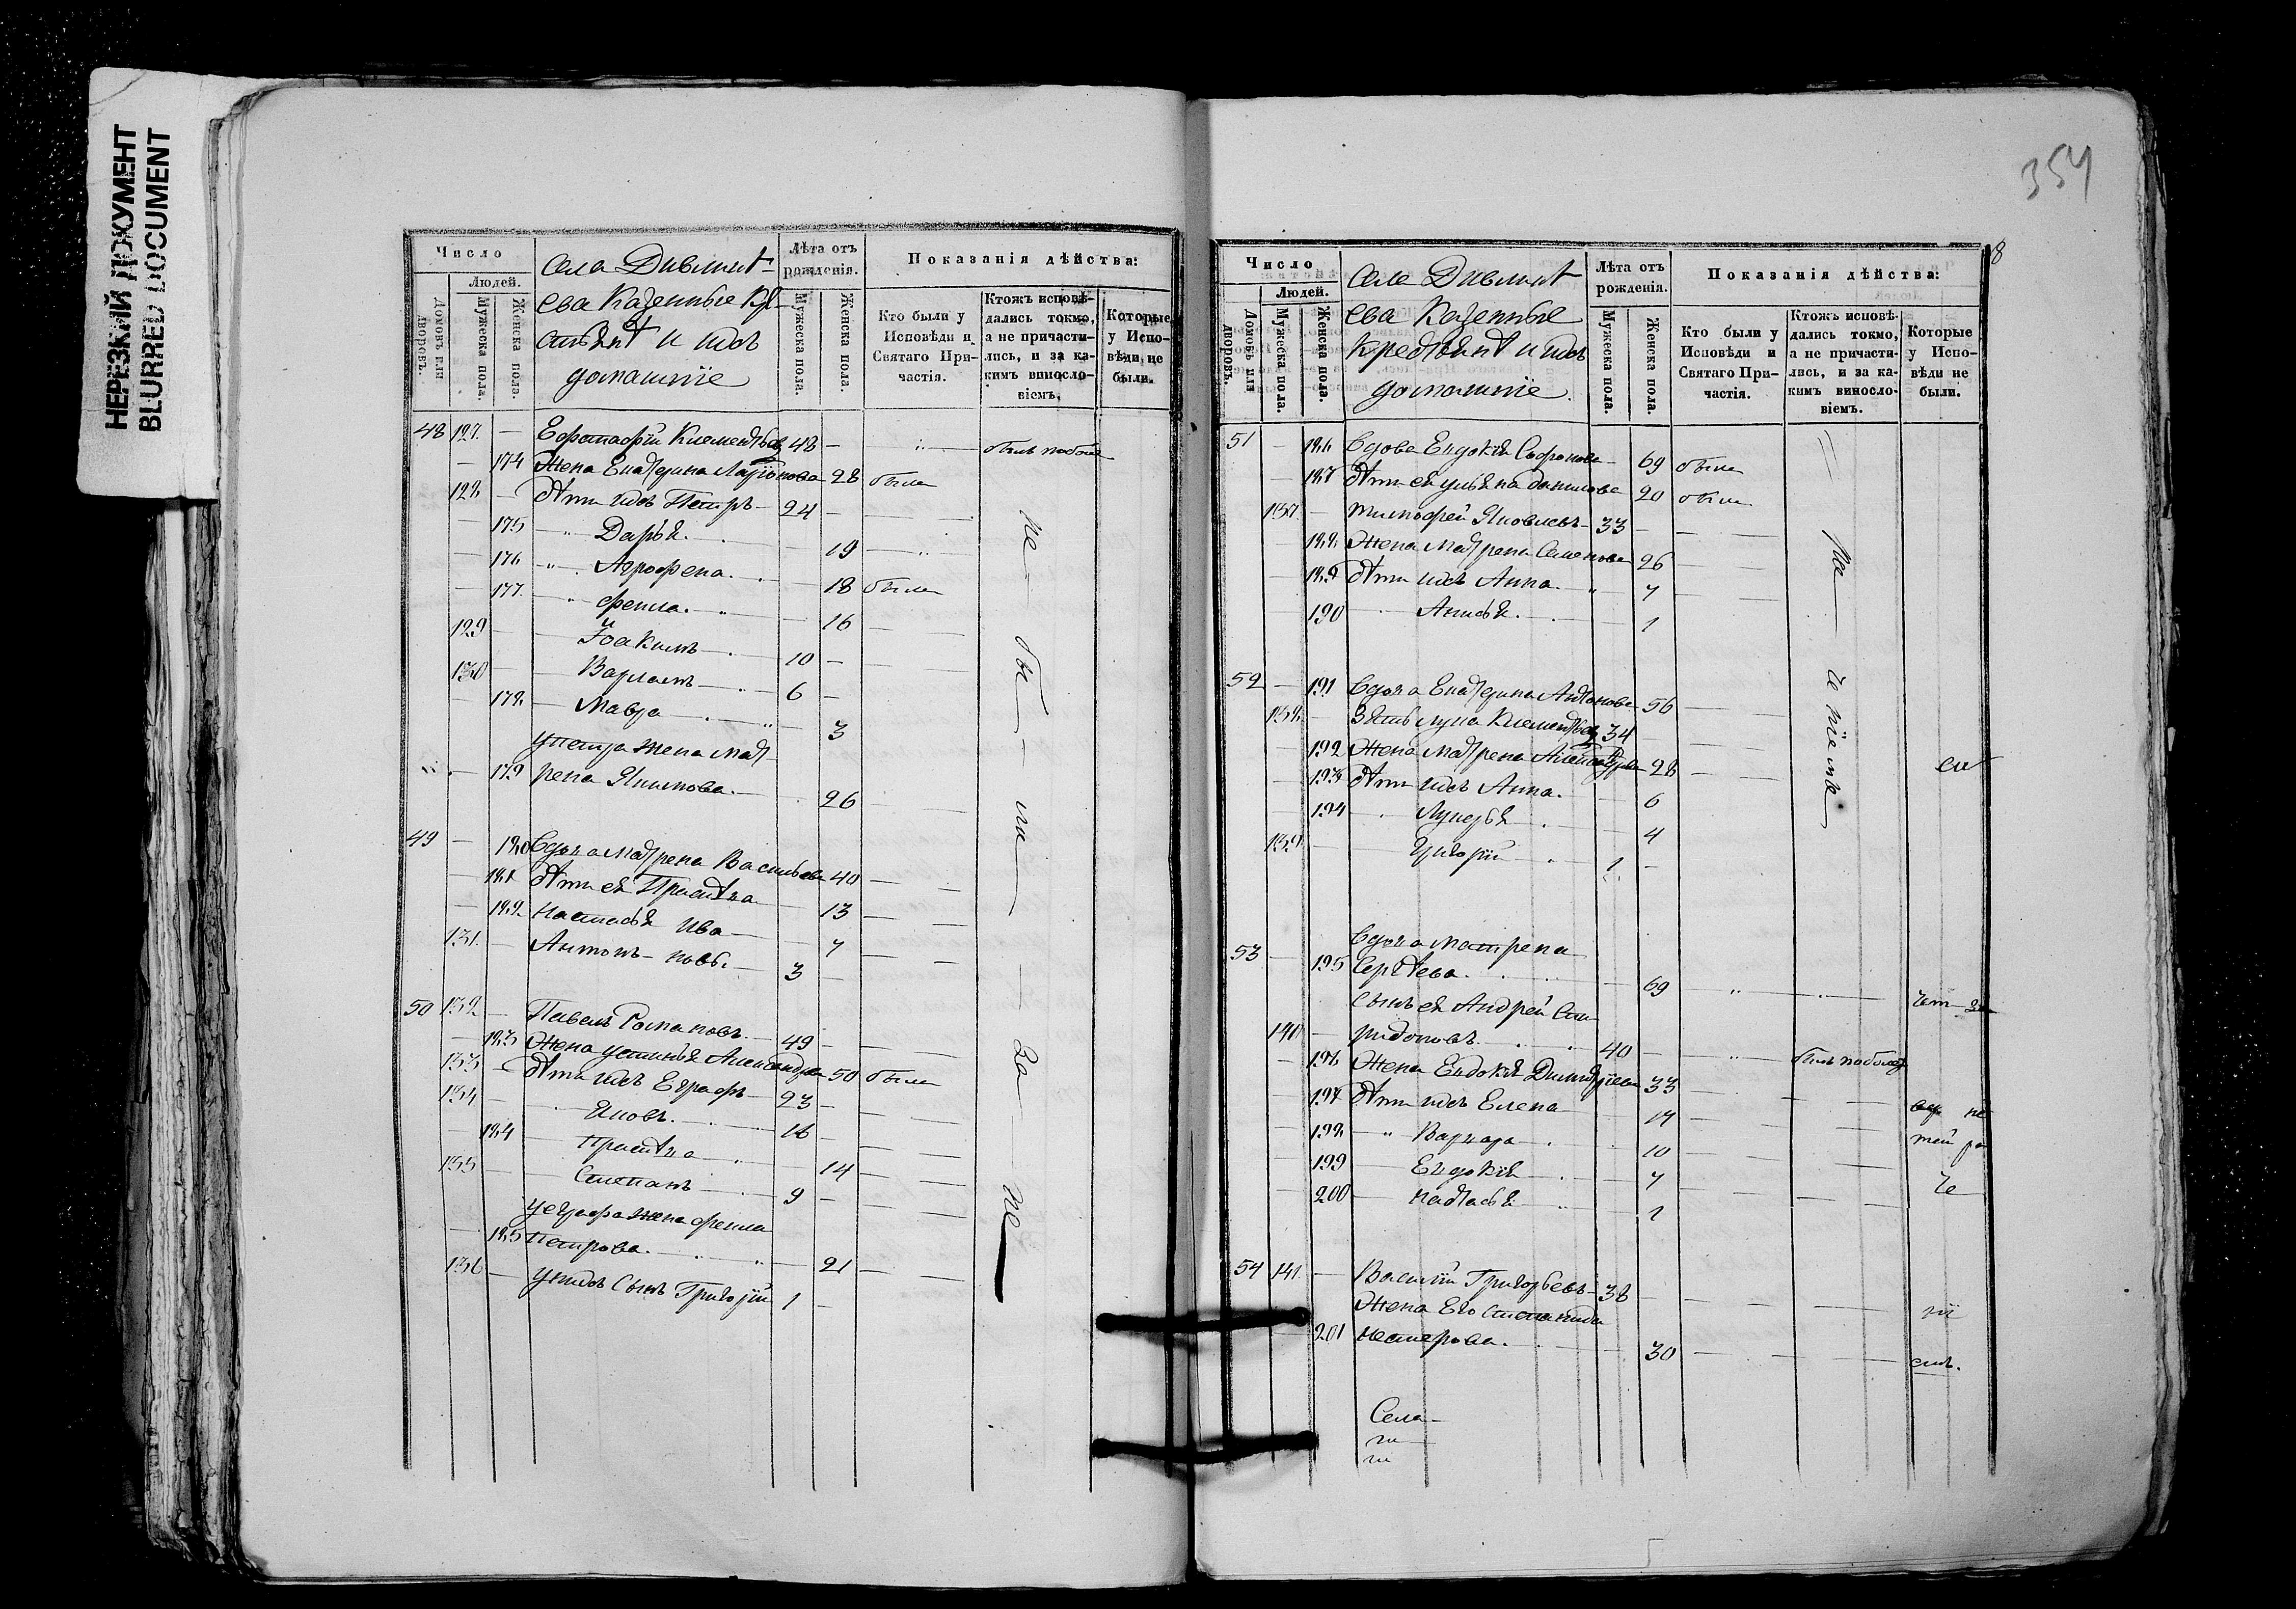 НЕРЕЗКИЙ ДОКУМЕНТ
BLURRED DOCUMENT
Число
Людей.
Домовъ или дворовъ.
Мужеска пола.
Женска пола.
Села Дивлит-
ева Казенные Кре-
стьяне и ихъ
домашніе
Лѣта отъ рожденія.
Мужеска пола.
Женска пола.
Показанія дѣйства:
Кто были у Исповѣди и Святаго При-частія.
Ктожъ исповѣ-дались токмо, а не причасти-лись, и за ка-кимъ винослo-віемъ.
Которые у Испо-вѣди не были.
48 127. — Климентьев 48 — былъ
— 174 Жена Екатерина Ларіонова 28 была
128 — Дѣти ихъ Петръ — 24 —
— 175 " Дарья. 19
— 176 " Агрофена. 18 была
— 177 " Фекла. 16
129 — Іоакимъ 10 —
130 — Варламъ 6 —
— 178 — Мавра 3
у Петра жена Мат-
— 179 рена Якимова. 26
49 — 180 Вдова Матрена Васильева 40
— 181 Дѣти ея 13
— 182 Настасья Ива- 7
131. — Антонъ — новы. 3 —
50 132 — Павелъ Романовъ 49 —
— 183 Жена Устинья Александрова 50 была
133 — Дѣти ихъ Евграфъ 23 —
134 — Яковъ. 16 —
— 184 14
135 — Степанъ 9 —
у Евграфа жена Фекла
— 185 Петрова. 21
136 — у нихъ сынъ Григорій 1 —
не — бы — ли — за — не
354
8
Число
Людей.
Домовъ или дворовъ.
Мужеска пола.
Женска пола.
Села Дивлит
ева Казенные
Крестьяне и ихъ
домашніе.
Лѣта отъ рожденія.
Мужеска пола.
Женска пола.
Показанія дѣйства:
Кто были у Исповѣди и Святаго При-частія.
Ктожъ исповѣ-дались токмо, а не причасти-лись, и за ка-кимъ винослo-віемъ.
Которые у Испо-вѣди не были.
51 — 186 Вдова Евдокія Софронова 69 была
— 187 Дѣти ея Ульяна Данилова 20 была
137 — Тимофей Яковлевъ — 33 —
— 188 Жена Матрена Семенова 26
— 189 Дѣти ихъ Анна. 7
— 190 Анисья. 1
52 — 191 Вдова Екатерина Антонова 56
138 — Зять Лука Климентьев 34
— 192 Жена Матрена 28
— 193 Дѣти ихъ Анна. 6
— 194 Лукерья 4
139 — Григорій 1 —
53 — Вдова Матрена
195 Сергѣева. 69
Сынъ ея Андрей Спи-
140 — ридоновъ. 40 — былъ
— 196 Жена Евдокія Димитріева 33
— 197 Дѣти ихъ Елена 14
— 198 " Варвара 10
— 199 Евдокія 7
— 200 Настасья. 1
54 141. — Василій Григорьевъ — 38
Жена Его Степанида
— 201 Нестерова. 30
не — че ніемъ
Села